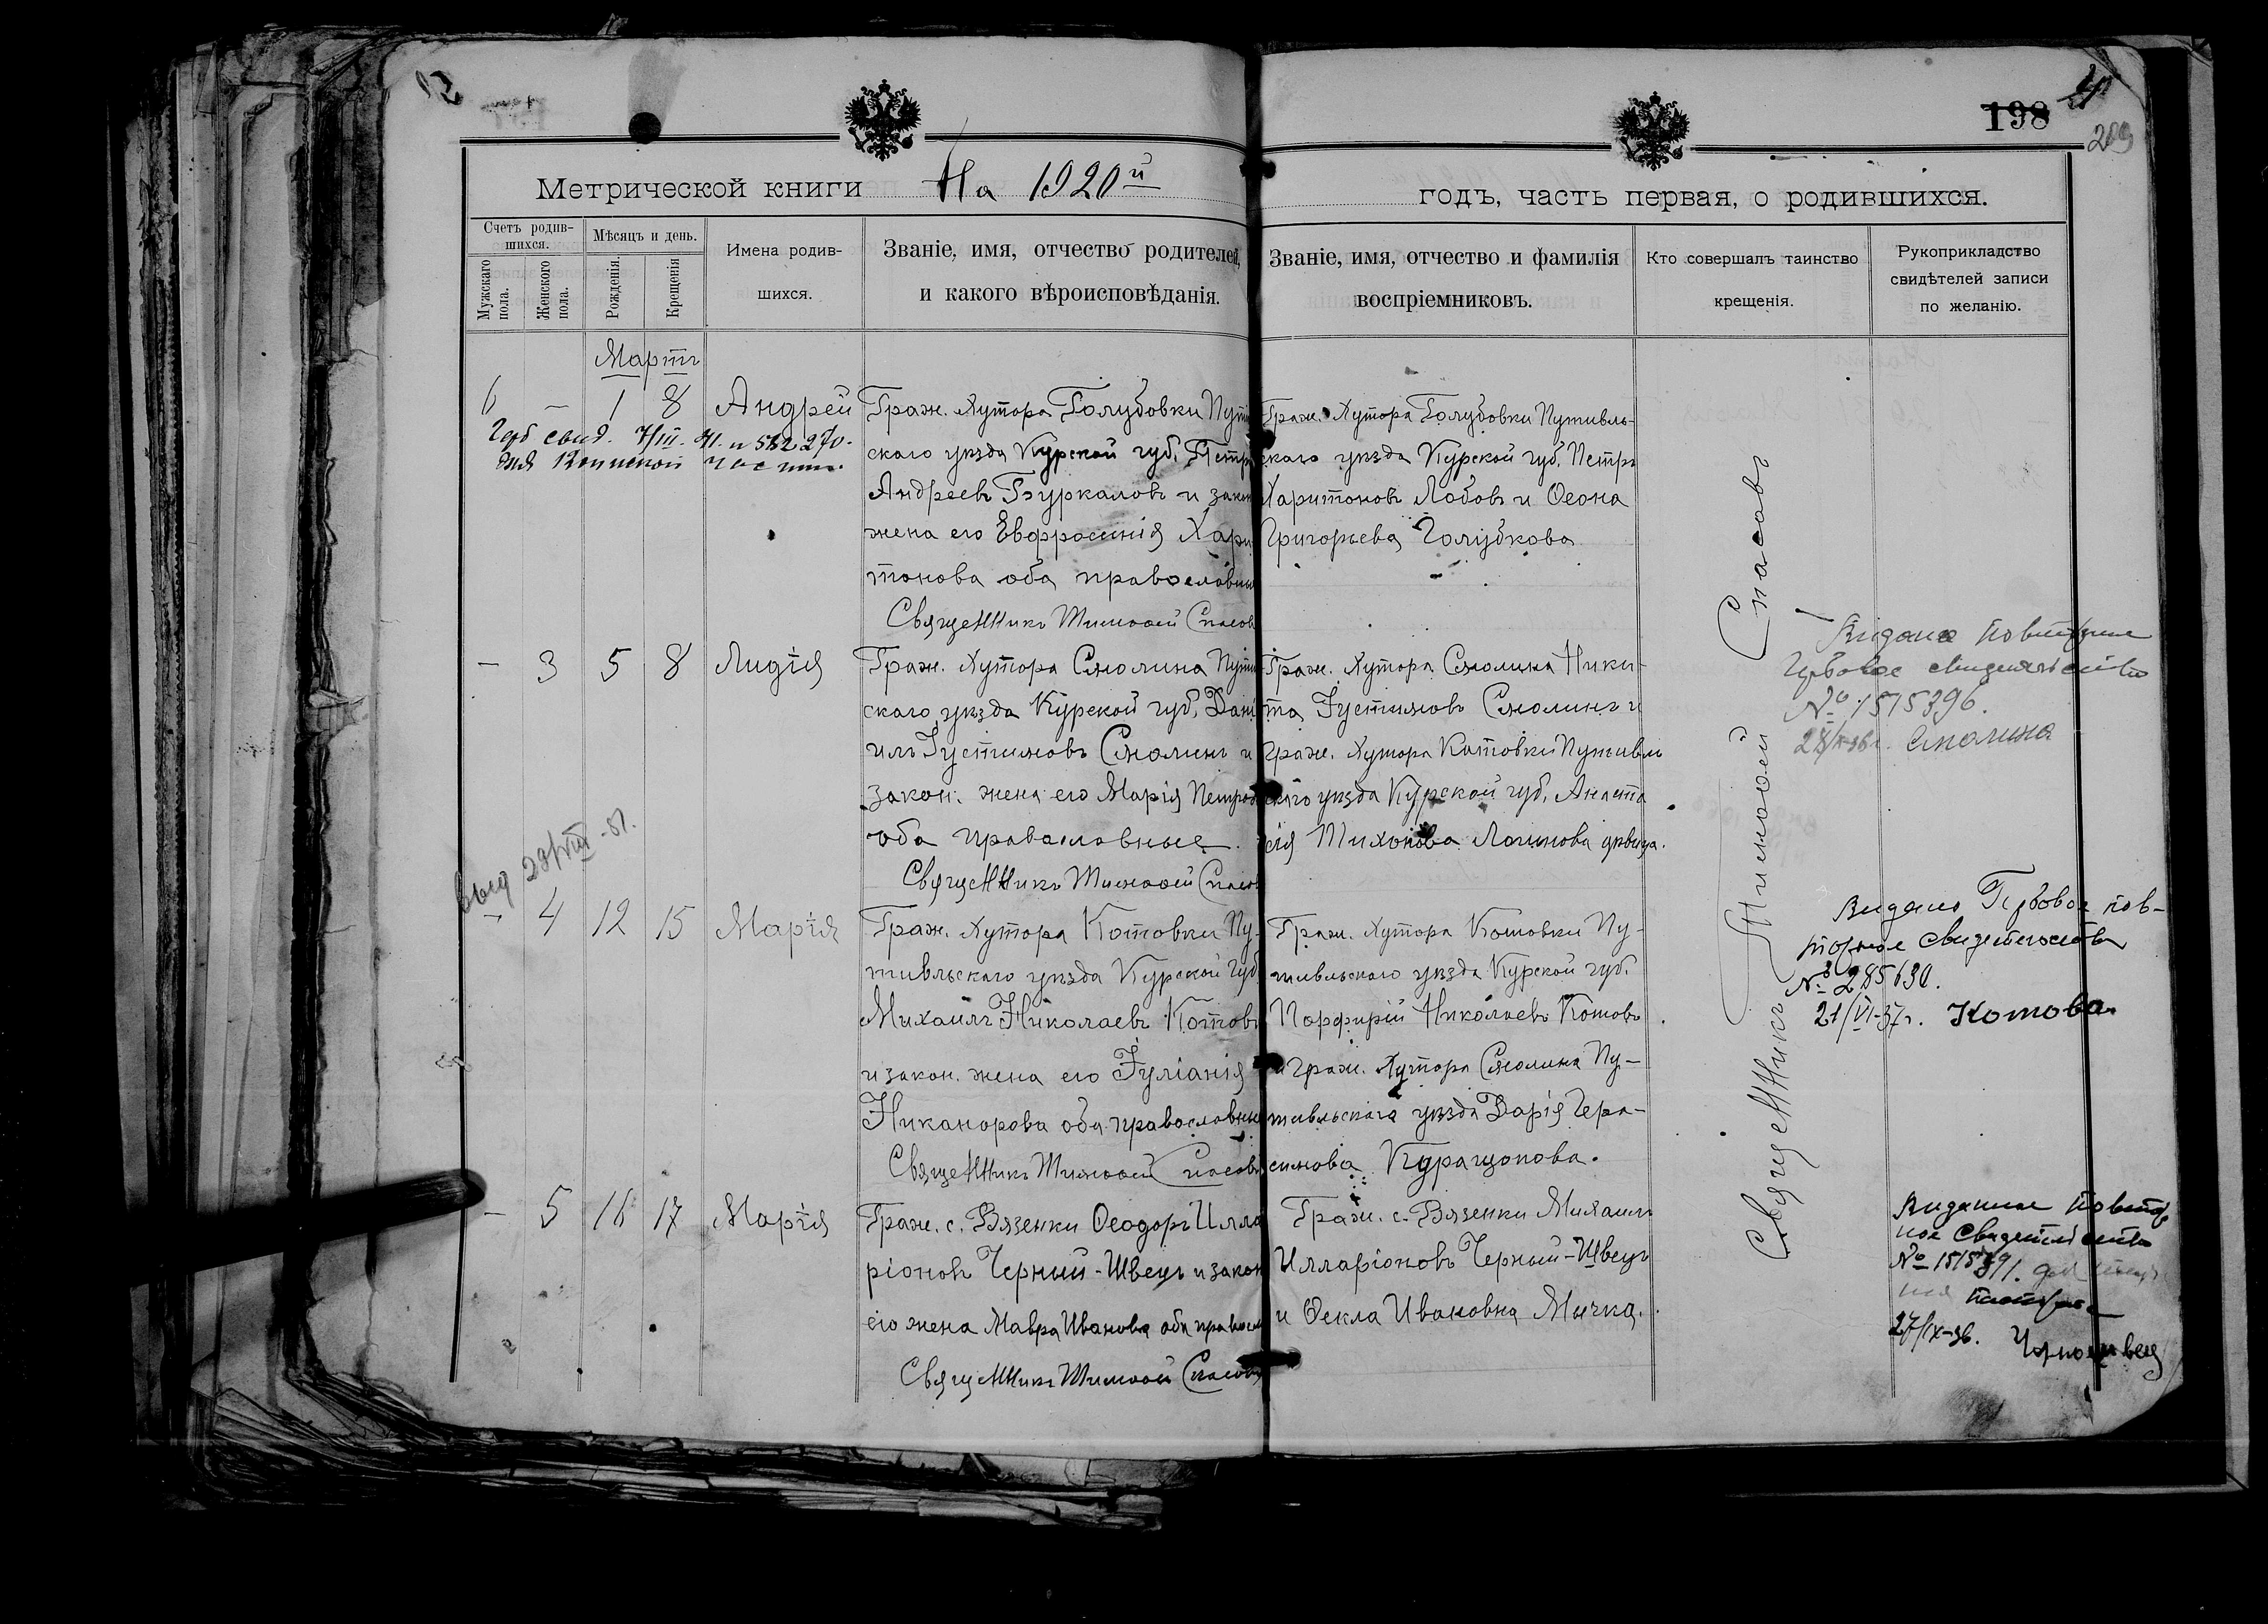 13
198
209
Метрической книги На 1920й годъ, часть первая, о родившихся.
Счетъ родив-
шихся.
Мужскаго
пола.
Женского
пола.
Мѣсяцъ и день.
Рожденія.
Крещенія
Имена родив-
шихся.
Званіе, имя, отчество родителей,
и какого вѣроисповѣданія.
Званіе, имя, отчество и фамилія
воспріемниковъ.
Кто совершалъ таинство
крещенія.
Рукоприкладство
свидѣтелей записи
по желанію.
Мартъ
6 – 1 8 Андрей
Герб свид. 7/III. 41. н 582270.
для воинской части.
Граж. Хутора Голубовки Пути
скаго уѣзда Курской губ. Петръ
Андреевъ Буркаловъ и закон
жена его Евфросинія Хари
тонова оба православны
Священникъ Тимоѳей Спасов
Граж. Хутора Голубовки Путивль-
скаго уѣзда Курской губ. Петръ
Харитоновъ Лобовъ и Ѳеона
Григорьева Голубкова
– 3 5 8 Лидія
Граж. Хутора Смолина Пути
скаго уѣзда Курской губ. Дані
илъ Іустиновъ Смолинъ и
закон. жена его Марія Петров
оба православные
Священникъ Тимоѳей Спасов
Граж. Хутора Смолина Ники-
та Іустиновъ Смолинъ и
граж. Хутора Котовки Путивль
скаго уѣзда Курской губ. Анаста
сія Тихонова Логинова дѣвица.
Видано повторне
Гербовое свидетельство
№ 1515396.
28/X-36г. Смолина
выд 28/VIII-51.
– 4 12 15 Марія
Граж. Хутора Котовки Пу-
тивльскаго уѣзда Курской губ
Михаилъ Николаевъ Котовъ
и закон. жена его Іуліанія
Никанорова оба православны
Священникъ Тимоѳей Спасовъ
Граж. Хутора Котовки Пу-
тивльскаго уѣзда Курской губ.
Порфирій Николаевъ Котовъ
и граж. Хутора Смолина Пу-
тивльскаго уѣзда Дарія Гера-
симова
Видано Гербовое пов-
торное свидетельство
№ 285630.
21/VI-37г. Котова
– 5 16 17 Марія
Граж. с. Вязенки Ѳеодоръ Илла
ріоновъ Черный-Швецъ и закон
его жена Мавра Иванова оба правосл
Священникъ Тимоѳей Спасовъ
Граж. с. Вязенки Михаилъ
Илларіоновъ Черный-Швецъ
и Ѳекла Ивановна Мычка.
повтор
ное свидетельство
№ 1515391.
27/IX-36.
Священникъ Тимоѳей Спасовъ